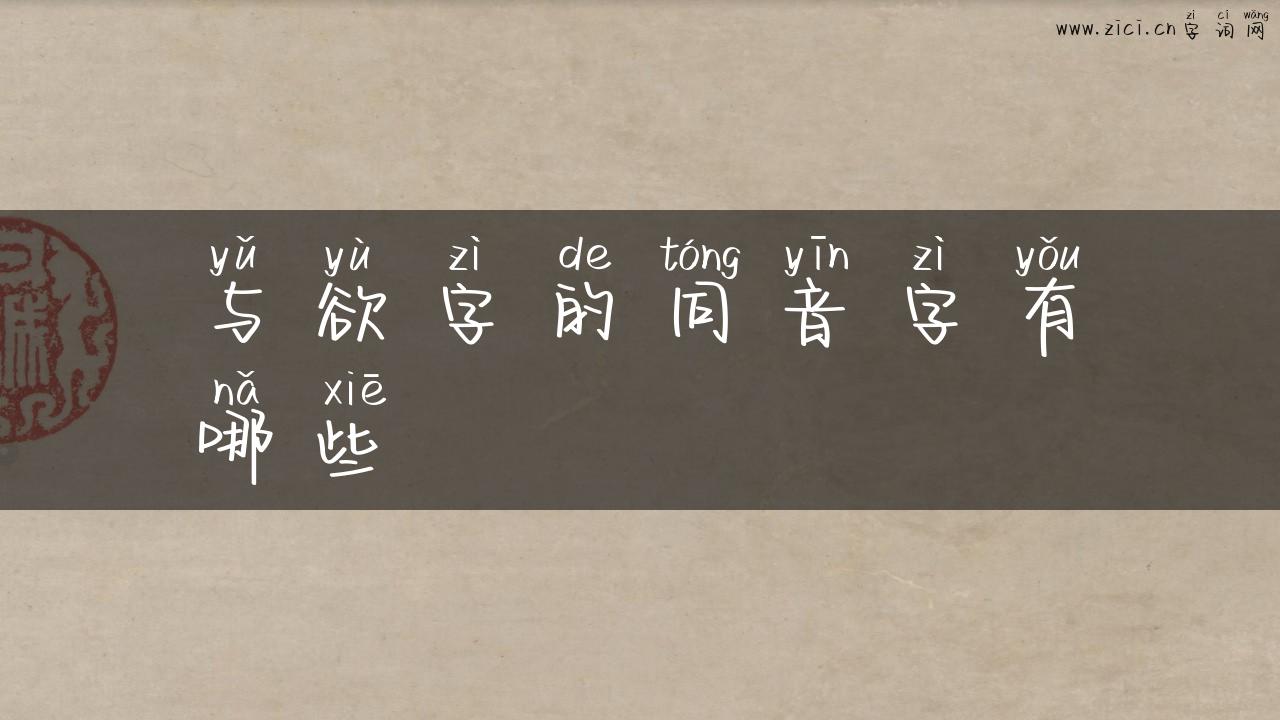 zì cí wǎng
www.zici.cn 字词网
yǔ yù zì de tóng yīn zì yǒu
与欲字的同音字有
nǎ xiē
哪些